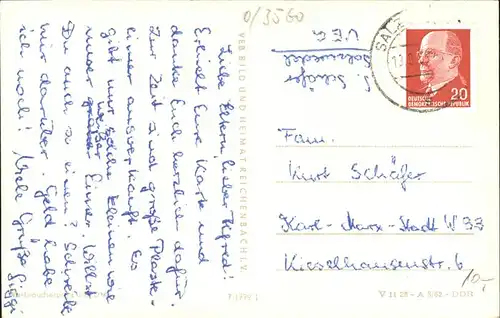 0/3560
Liebe Eltern, lieber Alfred!
Erhielt Eure Karte und
danke Euch herzlich dafür.
Zur Zeit sind große Plaste-
eimer ausverkauft. Es
gibt nur solche kleinen wie
unser weißer Eimer. Willst
Du auch so einen? Schreibe
mir darüber. Geld habe
ich noch! Viele Grüße Siggi
VEB BILD UND HEIMAT REICHENBACH I. V.
S. Schäfer
Salzwedel
SALZ
20
DEUTSCHE
DEMOKRATISCHE REPUBLIK
Fam.
Kurt Schäfer
Karl-Marx-Stadt W 33
Kieselhausenstr. 6
10,-
V 11 28 - A 1/62 - DDR